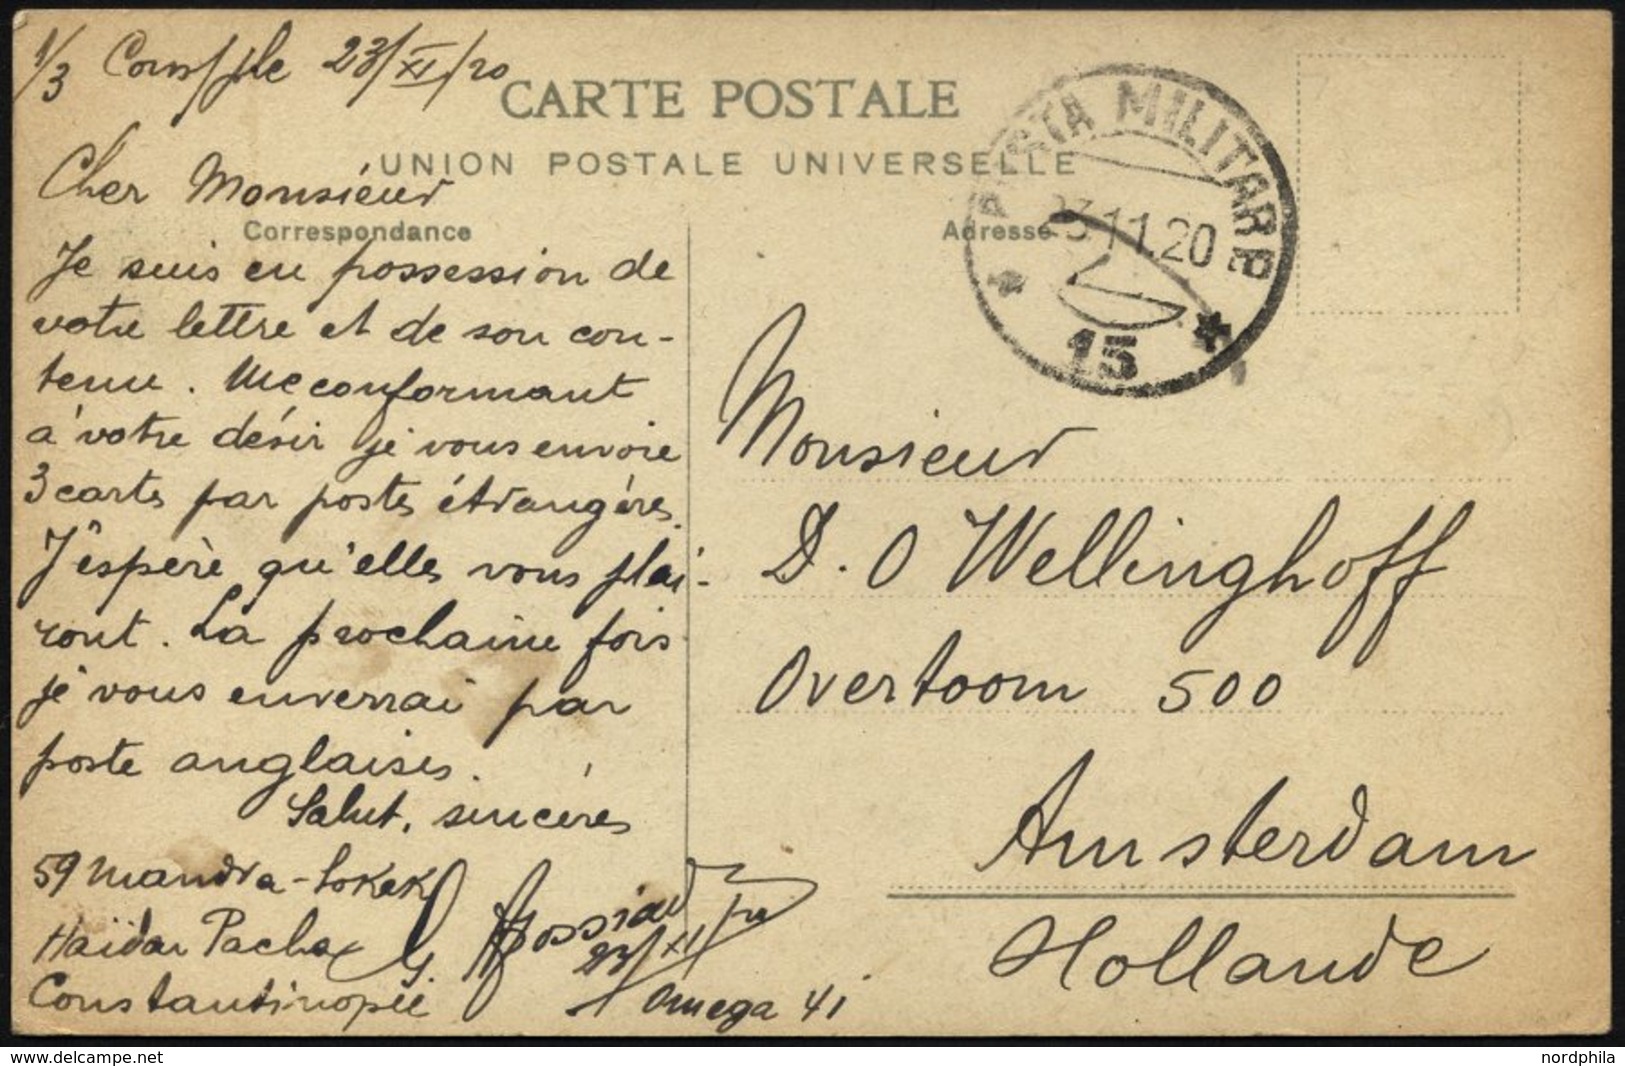 1/3 Cons/ple 23/XI/20
CARTE POSTALE
UNION POSTALE UNIVERSELLE
Correspondance
Adresse
POSTA MILITARE
23.11.20
15
Cher Monsieur
Je suis en possession de
votre lettre et de son con-
tenu. Me conformant
à votre désir je vous envoie
3 cartes par postes étrangéres.
J'espère qu'elles vous plai-
ront. La prochaine fois
je vous enverrai par
poste anglaises.
Salut, sincères
59 Mandra-Sokak
Haïdar Pacha
Constantinople
G.
23/XI/20
Omega 41
Monsieur
D. O Wellinghoff
Overtoom 500
Amsterdam
Hollande
delcampe.net
nordphila